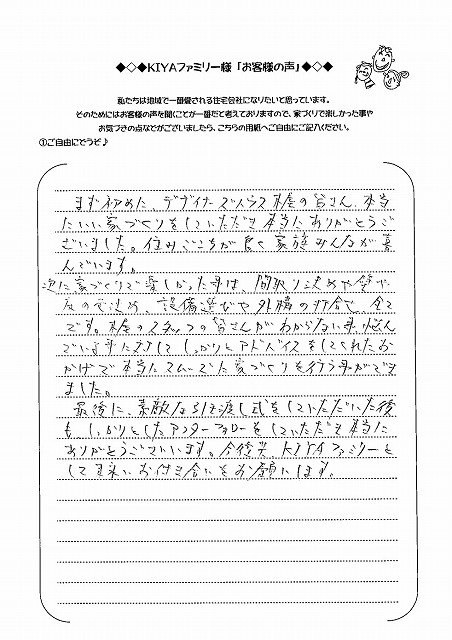 ◆◇◆KIYAファミリー様「お客様の声」◆◇◆
私たちは地域で一番愛される住宅会社になりたいと思っています。
そのためにはお客様の声を聞くことが一番だと考えておりますので、家づくりで楽しかった事や
お気づきの点などがございましたら、こちらの用紙へご自由にご記入ください。
①ご自由にどうぞ♪
まず初めに、デザイナーズハウス木屋の皆さん、本当
にいい家づくりをしていただき本当にありがとうご
ざいました。住みごこちが良く家族みんなが喜
んでいます。
次に家づくりで楽しかった事は、間取り決めや
の色決め、設備選びや外構の打合せ、全て
です。木屋のスタッフの皆さんがわからない事、悩ん
でいる事に対してしっかりとアドバイスをしてくれたお
かげで本当にスムーズに家づくりを行う事ができ
ました。
最後に、素敵な引き渡し式をしていただいた後
も、しっかりとしたアフターフォローをしていただき本当に
ありがとうございます。今後共、KIYAファミリーと
して末永いお付き合いをお願いします。